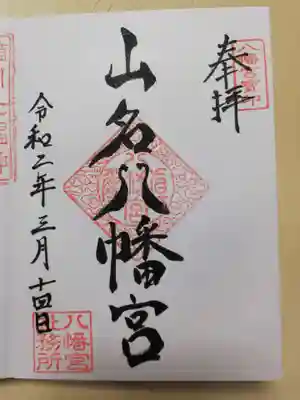 奉拝
八幡宮
山名八幡宮
令和二年三月十四日
八幡宮
社務所